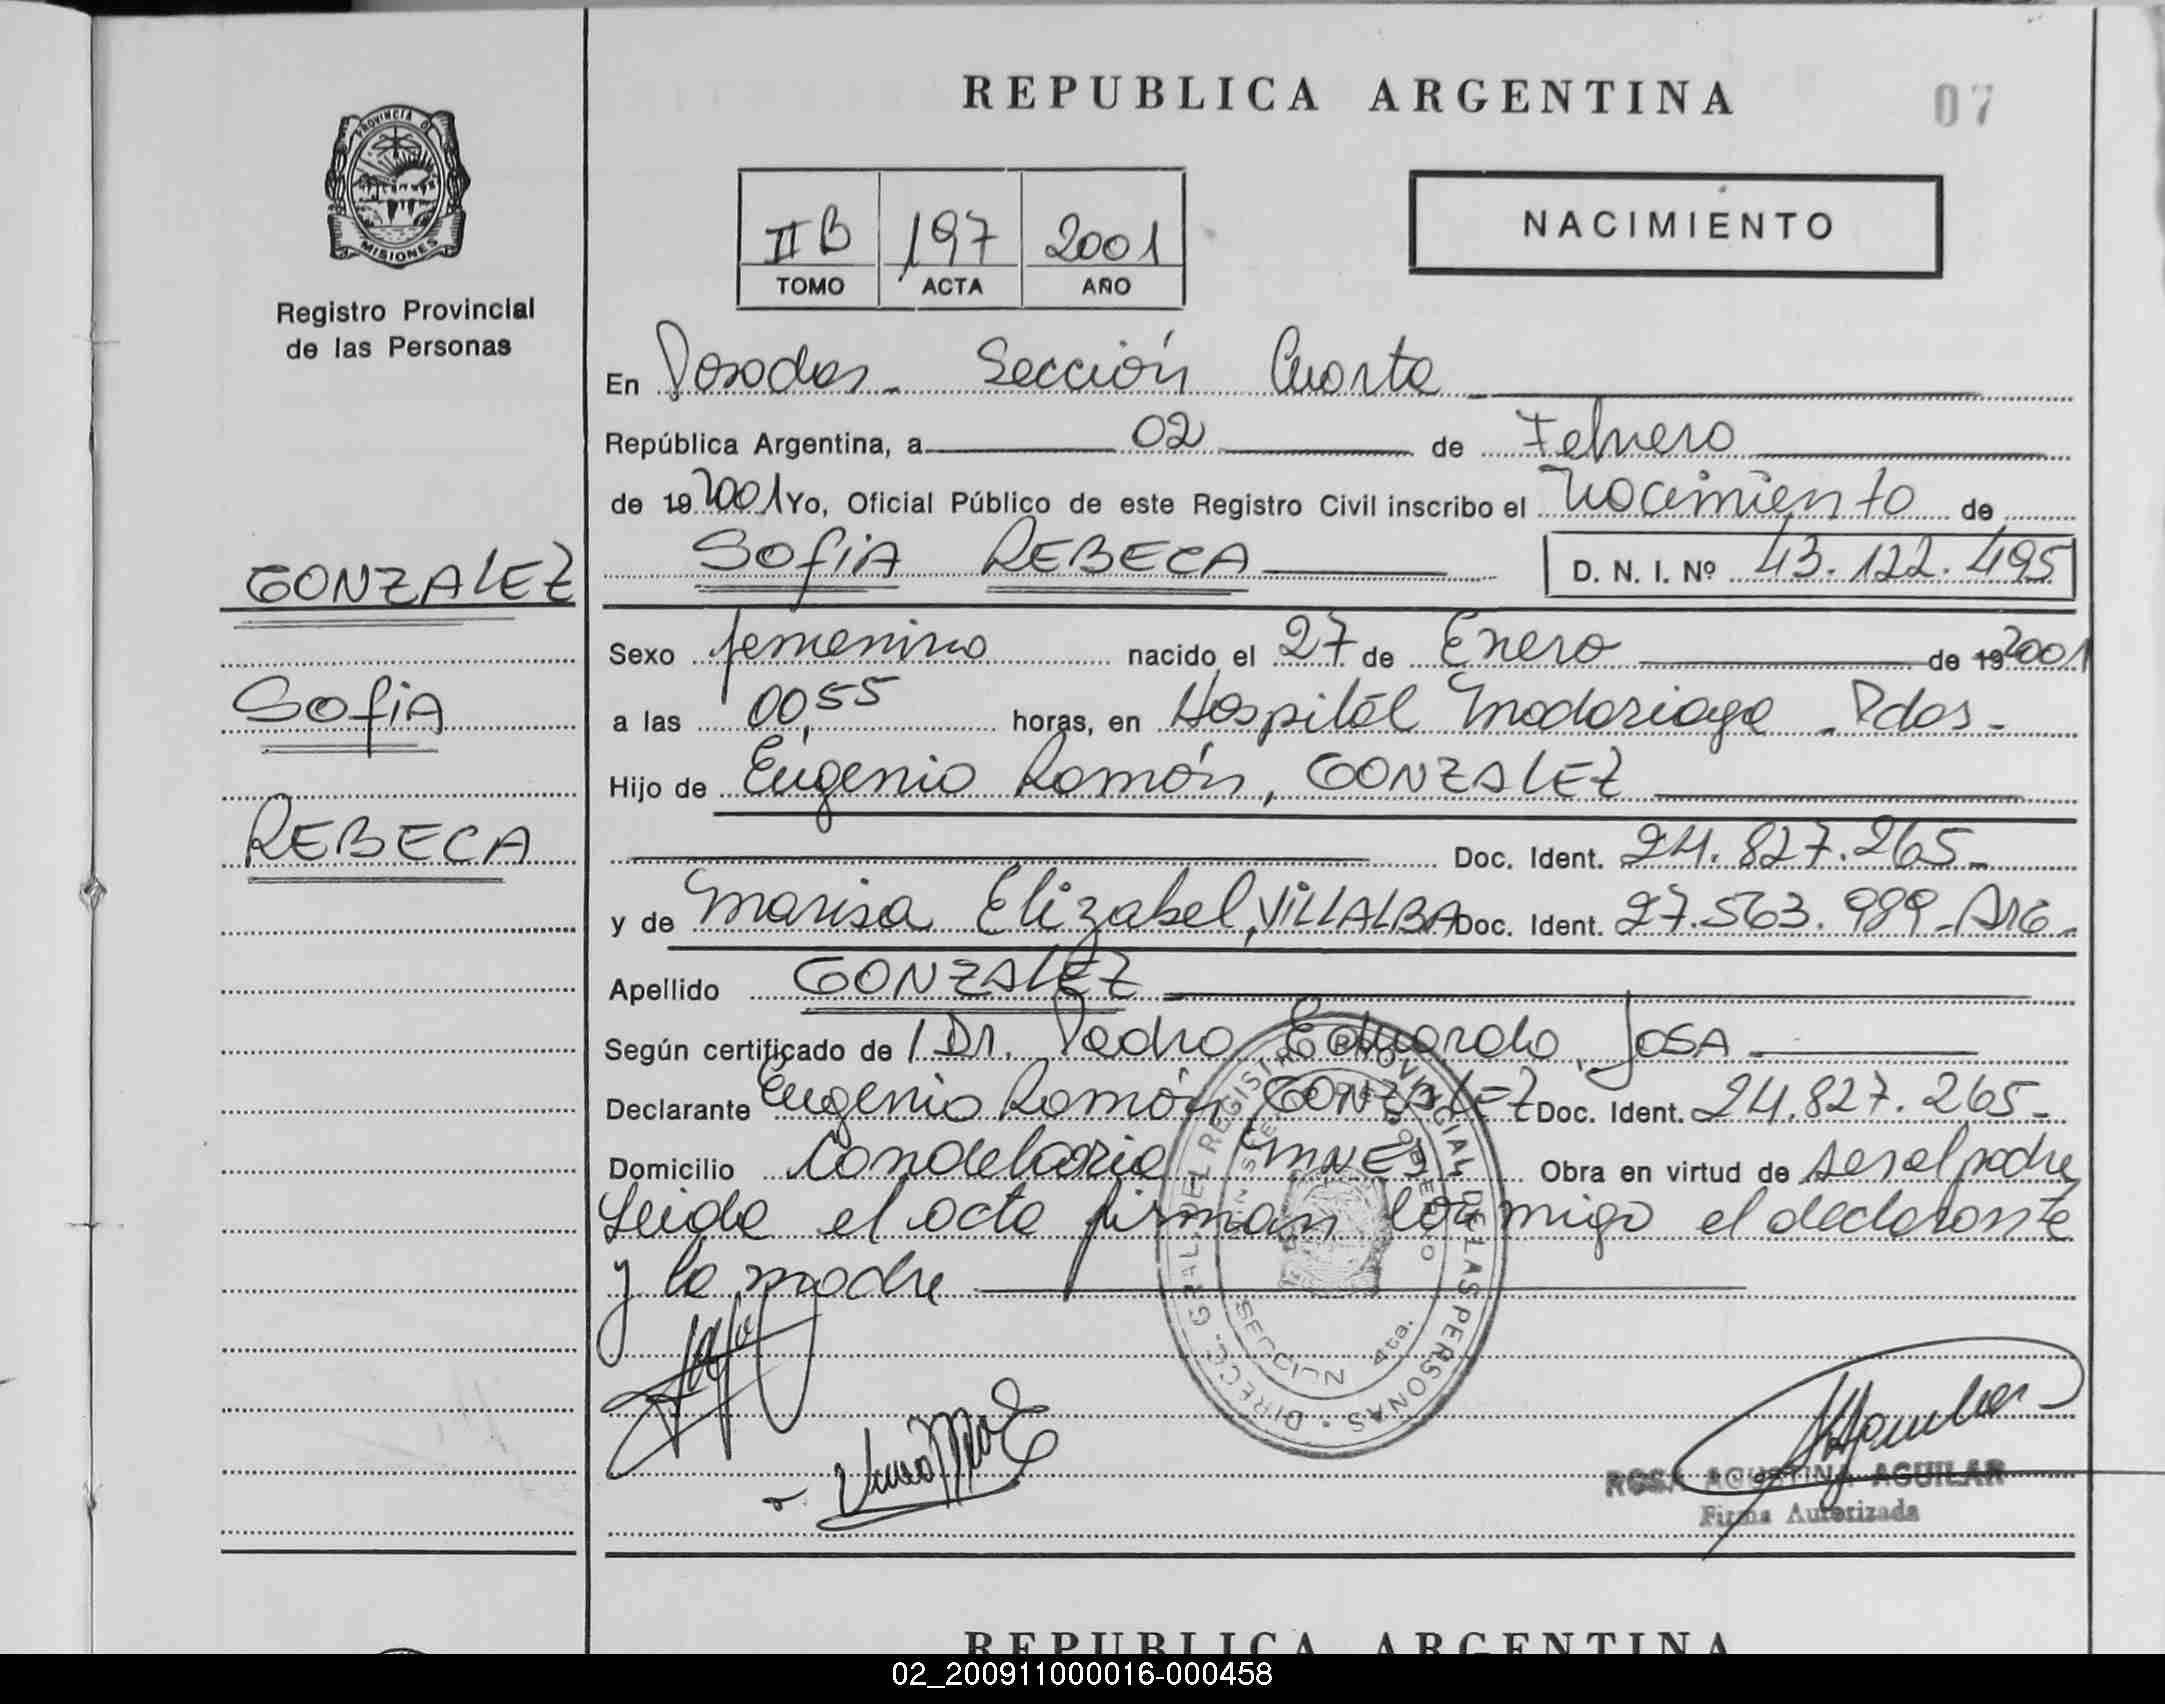 REPUBLICA ARGENTINA
07
PROVINCIA DE
MISIONES
Registro Provincial
de las Personas
II B 197 2001
TOMO ACTA AÑO
NACIMIENTO
En Posadas - Sección Cuarta
República Argentina, a 02 de Febrero
de 19 2001 Yo, Oficial Público de este Registro Civil inscribo el Nacimiento de
SOFIA REBECA D. N. I. Nº 43.122.495
GONZALEZ
SOFIA
REBECA
Sexo femenino nacido el 27 de Enero de 19 2001
a las 00,55 horas, en Hospital Madariaga - Pdas -
Hijo de Eugenio Ramón, GONZALEZ
Doc. Ident. 24.827.265 -
y de Marisa Elizabel, VILLALBA Doc. Ident. 27.563.989 - ARG -
Apellido GONZALEZ
Según certificado de / Dr. Pedro Eduardo, JOSA
Declarante Eugenio Ramón GONZALEZ Doc. Ident. 24.827.265 -
Domicilio Candelaria Mnes Obra en virtud de ser el padre
Leida el acta firman conmigo el declarante
y la madre
DIRECC. GRAL. DEL REGISTRO PROVINCIAL DE LAS PERSONAS
SECCION 4ta.
ROSA AGUSTINA AGUILAR
Firma Autorizada
REPUBLICA ARGENTINA
02_200911000016-000458